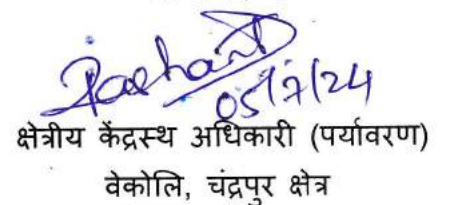 Prashant
05/7/24
क्षेत्रीय केंद्रस्थ अधिकारी (पर्यावरण)
वेकोलि, चंद्रपुर क्षेत्र